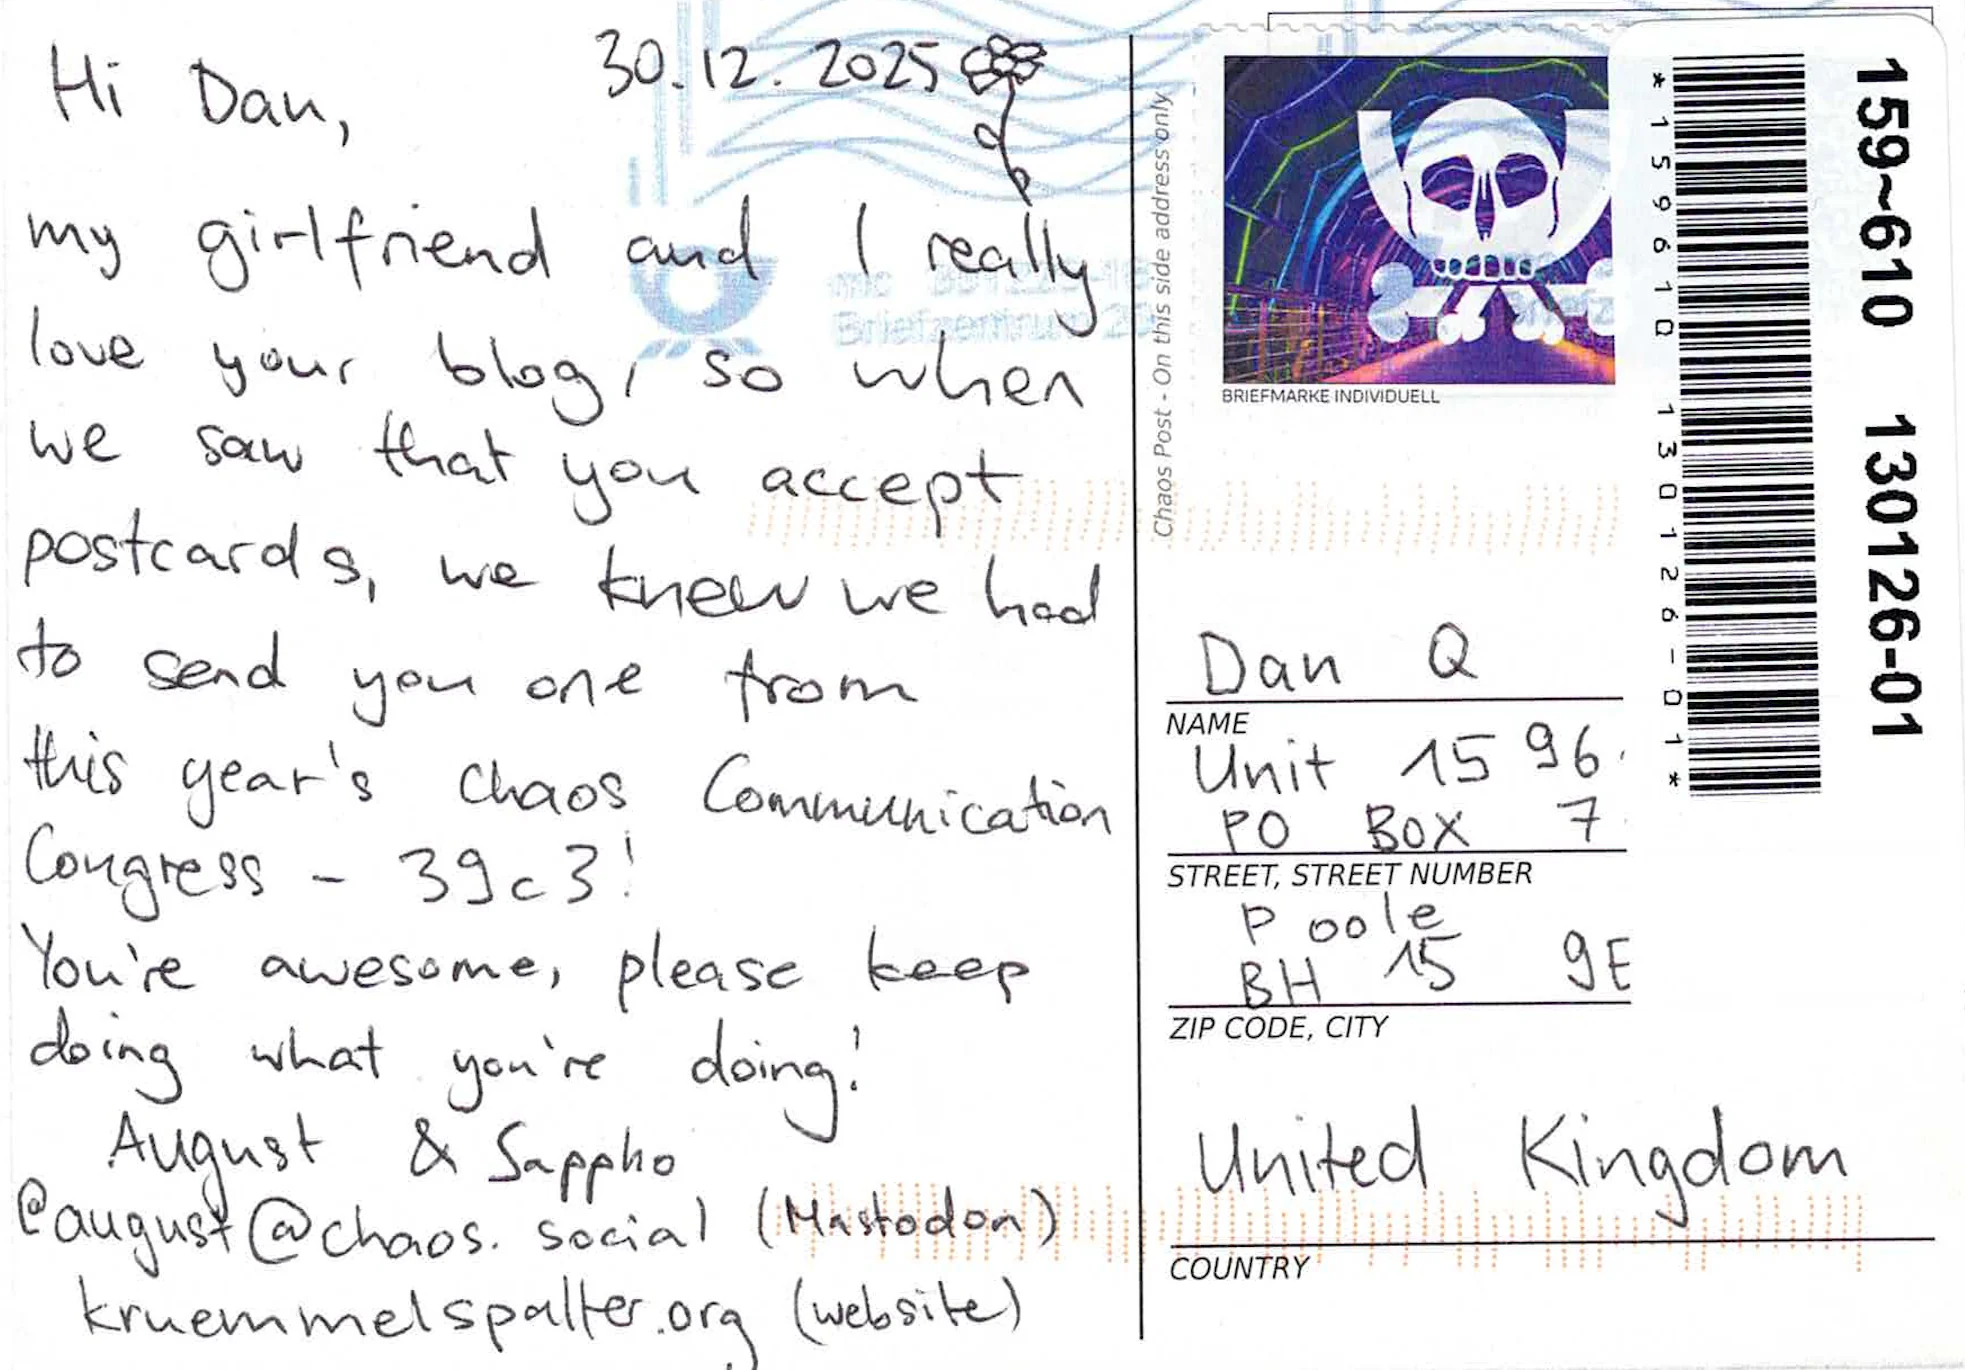 30.12.2025
Hi Dan,
my girlfriend and I really
love your blog, so when
we saw that you accept
postcards, we knew we had
to send you one from
this year's Chaos Communication
Congress - 39c3!
You're awesome, please keep
doing what you're doing!
August & Sappho
@august@chaos.social (Mastodon)
kruemmelspalter.org (website)
Briefzentrum
Chaos Post - On this side address only
BRIEFMARKE INDIVIDUELL
*159610 130126-01*
159~610 130126-01
Dan Q
NAME
Unit 1596
PO BOX 7
STREET, STREET NUMBER
Poole
BH 15 9E
ZIP CODE, CITY
United Kingdom
COUNTRY